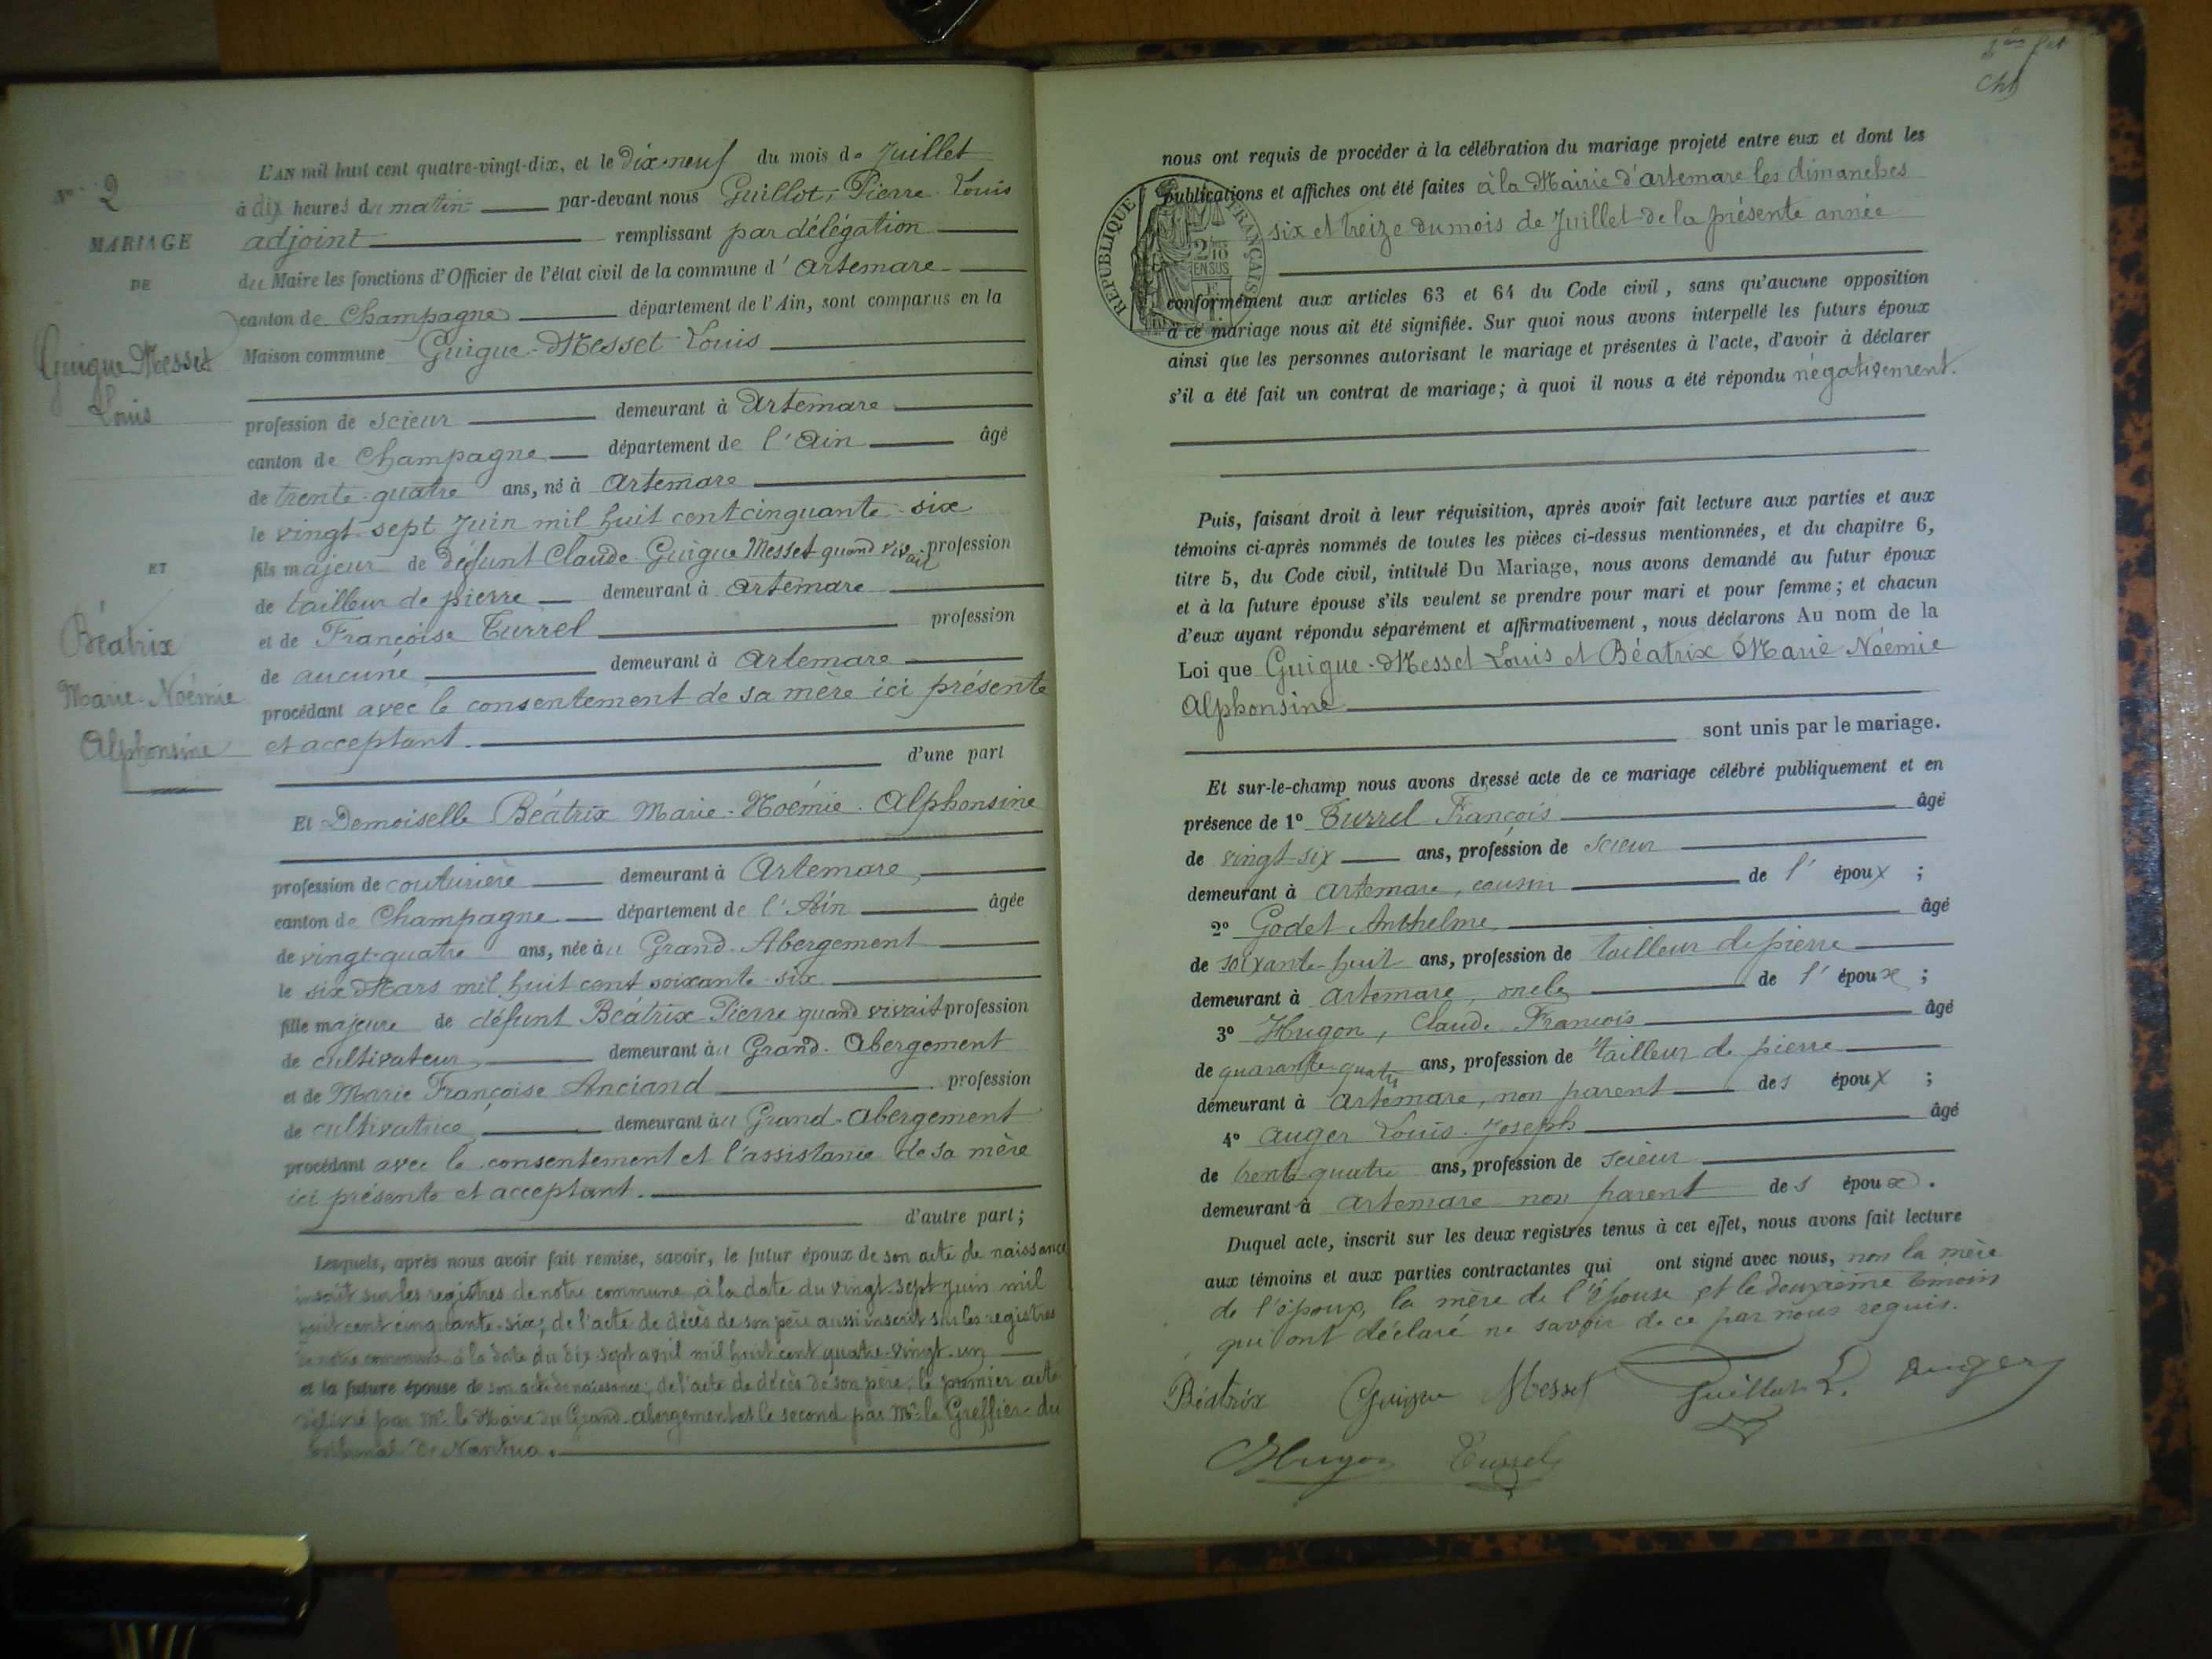 N° 2
MARIAGE
DE
Guigue Messet
Louis
ET
Béatrix
Marie-Noémie
Alphonsine
L'AN mil huit cent quatre-vingt-dix, et le dix-neuf du mois de Juillet
à dix heures du matin par-devant nous Guillot, Pierre Louis
adjoint remplissant par délégation
du Maire les fonctions d'Officier de l'état civil de la commune d'Artemare
canton de Champagne département de l'Ain, sont comparus en la
Maison commune Guigue-Messet Louis
profession de scieur demeurant à Artemare
canton de Champagne département de l'Ain âgé
de trente-quatre ans, né à Artemare
le vingt-sept Juin mil huit cent cinquante-six
fils majeur de défunt Claude Guigue Messet quand vivait profession
de tailleur de pierre demeurant à Artemare
et de Françoise Turrel profession
de aucune demeurant à Artemare
procédant avec le consentement de sa mère ici présente
et acceptant.
d'une part
Et Demoiselle Béatrix Marie-Noémie-Alphonsine
profession de couturière demeurant à Artemare,
canton de Champagne département de l'Ain âgée
de vingt-quatre ans, née au Grand-Abergement
le six Mars mil huit cent soixante-six
fille majeure de défunt Béatrix Pierre quand vivait profession
de cultivateur demeurant au Grand-Abergement
et de Marie Françoise Anciand profession
de cultivatrice demeurant au Grand-Abergement
procédant avec le consentement et l'assistance de sa mère
ici présente et acceptant.
d'autre part;
Lesquels, après nous avoir fait remise, savoir, le futur époux de son acte de naissance
inscrit sur les registres de notre commune à la date du vingt-sept Juin mil
huit cent cinquante-six; de l'acte de décès de son père aussi inscrit sur les registres
de notre commune à la date du dix-sept avril mil huit cent quatre-vingt-un
et la future épouse de son acte de naissance; de l'acte de décès de son père, le premier acte
délivré par Mr le Maire du Grand-Abergement et le second par Mr le Greffier du
tribunal de Nantua.
nous ont requis de procéder à la célébration du mariage projeté entre eux et dont les
publications et affiches ont été faites à la Mairie d'Artemare les dimanches
six et treize du mois de Juillet de la présente année
RÉPUBLIQUE FRANÇAISE
2/10
EN SUS
conformément aux articles 63 et 64 du Code civil, sans qu'aucune opposition
à ce mariage nous ait été signifiée. Sur quoi nous avons interpellé les futurs époux
ainsi que les personnes autorisant le mariage et présentes à l'acte, d'avoir à déclarer
s'il a été fait un contrat de mariage; à quoi il nous a été répondu négativement.
Puis, faisant droit à leur réquisition, après avoir fait lecture aux parties et aux
témoins ci-après nommés de toutes les pièces ci-dessus mentionnées, et du chapitre 6,
titre 5, du Code civil, intitulé Du Mariage, nous avons demandé au futur époux
et à la future épouse s'ils veulent se prendre pour mari et pour femme; et chacun
d'eux ayant répondu séparément et affirmativement, nous déclarons Au nom de la
Loi que Guigue-Messet Louis et Béatrix Marie Noémie
Alphonsine
sont unis par le mariage.
Et sur-le-champ nous avons dressé acte de ce mariage célébré publiquement et en
présence de 1° Turrel François âgé
de vingt-six ans, profession de scieur
demeurant à Artemare, cousin de l'époux;
2° Godet Anthelme âgé
de soixante-huit ans, profession de tailleur de pierre
demeurant à Artemare, oncle de l'époux;
3° Hugon, Claude François âgé
de quarante-quatre ans, profession de tailleur de pierre
demeurant à Artemare, non parent des époux;
4° Auger Louis-Joseph âgé
de trente-quatre ans, profession de scieur
demeurant à Artemare non parent des époux.
Duquel acte, inscrit sur les deux registres tenus à cet effet, nous avons fait lecture
aux témoins et aux parties contractantes qui ont signé avec nous, non la mère
de l'époux, la mère de l'épouse et le deuxième témoin
qui ont déclaré ne savoir de ce par nous requis.
Béatrix Guigue Messet Guillot L. Auger
Hugon Turrel